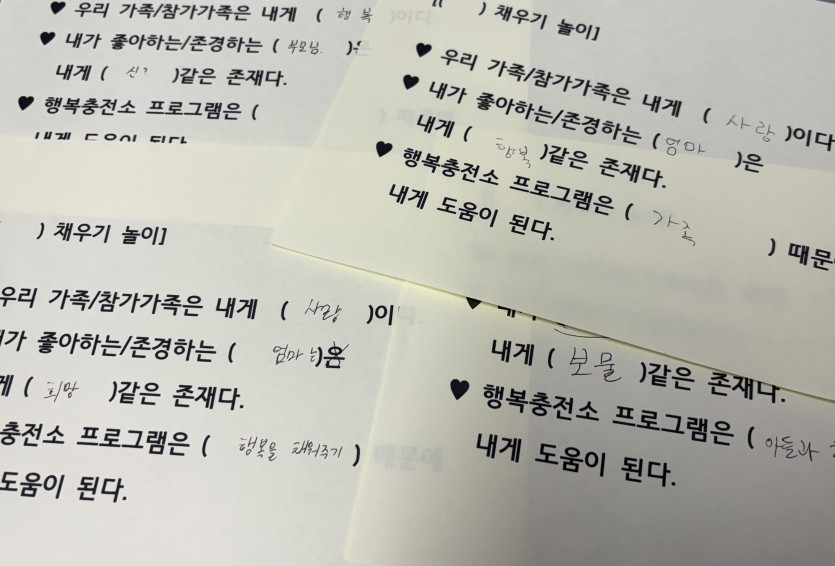 ♥ 우리 가족/참가가족은 내게 ( 행복 )이다
♥ 내가 좋아하는/존경하는 ( 부모님 )은
내게 ( )같은 존재다.
♥ 행복충전소 프로그램은 (
내게 도움이 된다
) 채우기 놀이]
♥ 우리 가족/참가가족은 내게 ( 사랑 )이다
♥ 내가 좋아하는/존경하는 ( 엄마 )은
내게 ( 행복 )같은 존재다.
♥ 행복충전소 프로그램은 ( 가족 ) 때문에
내게 도움이 된다.
) 채우기 놀이]
우리 가족/참가가족은 내게 ( 사랑 )이다.
내가 좋아하는/존경하는 ( 엄마는 )은
게 ( 희망 )같은 존재다.
충전소 프로그램은 ( 행복을 채워주기 ) 때문에
도움이 된다.
내게 ( 보물 )같은 존재다.
♥ 행복충전소 프로그램은 ( 아들과
내게 도움이 된다.